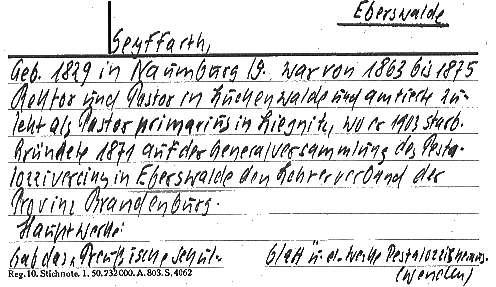 Eberswalde
Seyffarth,
Geb. 1829 in Naumburg /S., war von 1863 bis 1875
Rektor und Pastor in Luckenwalde und amtierte zu-
letzt als Pastor primarius in Liegnitz, wo er 1903 starb.
Gründete 1871 auf der Generalversammlung des Pesta-
lozzivereins in Eberswalde den Lehrerverband der
Provinz Brandenburg.
Hauptwerke:
Gab das "Preußische Schul-
blatt" u. d. Werke Pestalozzis heraus.
Reg. 10. Stichnote. 1. 50. 232000. A. 803. S. 4062
(wenden)